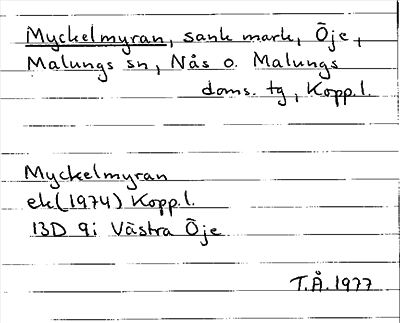 Myckelmyran, sank mark, Öje,
Malungs sn, Nås o. Malungs
doms. tg, Kopp.l.
Myckelmyran
ek(1974) Kopp.l.
13D 9i Västra Öje
T.Å.1977